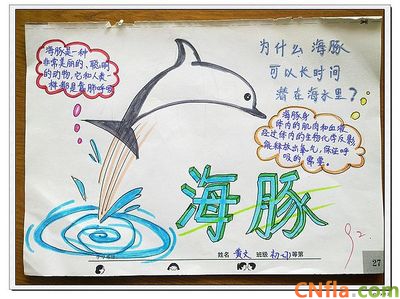 海豚是一种
非常美丽的、聪明
的动物,它和人类一
样都是靠肺呼吸
为什么海豚
可以长时间
潜在海水里?
海豚身
体内的肌肉和血液
经过体内的生物化学反应
能释放出氧气,保证呼
吸的需要。
海豚
姓名 黄文 班级 初一(1) 等第
92
27
CNfla.com